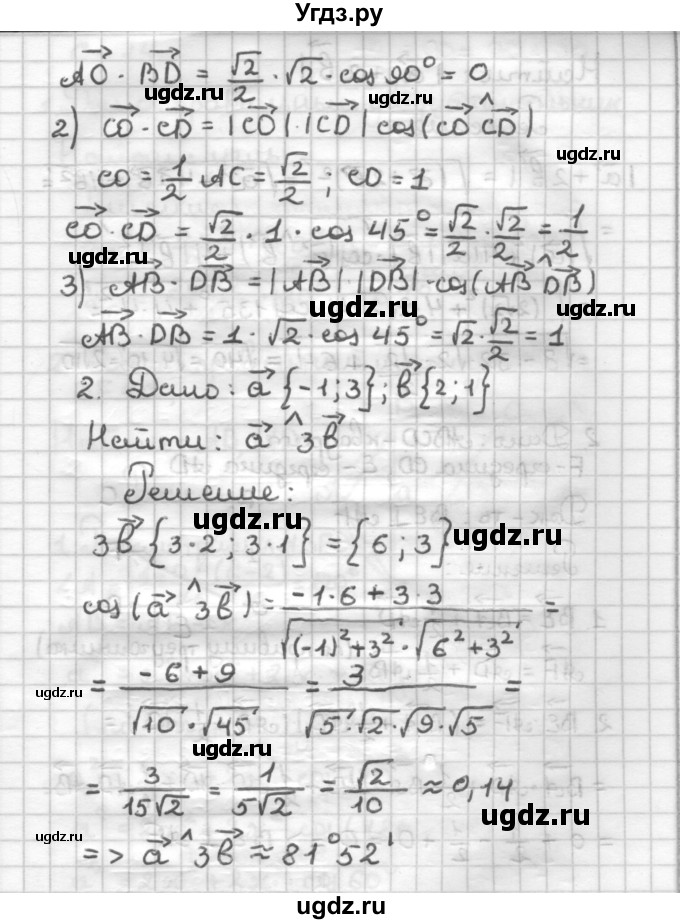 Угдз.ру
AO · BD = √2/2 · √2 · cos 90° = 0
ugdz.ru
2) CO · CD = |CO| · |CD| cos(CO ^ CD)
ugdz.ru
CO = 1/2 AC = √2/2 ; CD = 1
ugdz.ru
CO · CD = √2/2 · 1 · cos 45° = √2/2 · √2/2 = 1/2
ugdz.ru ugdz.ru
3) AB · DB = |AB| |DB| · cos(AB ^ DB)
ugdz.ru
AB · DB = 1 · √2 · cos 45° = √2 · √2/2 = 1
2. Дано: a {-1; 3}; b {2; 1}
ugdz.ru
Найти: a ^ 3b
ugdz.ru
Решение:
ugdz.ru
3b {3·2; 3·1} = {6; 3}
ugdz.ru
cos(a ^ 3b) = (-1·6 + 3·3) / (√((-1)² + 3²) · √(6² + 3²)) =
ugdz.ru
= (-6 + 9) / (√10 · √45) = 3 / (√5 · √2 · √9 · √5) =
ugdz.ru ugdz.ru
= 3/(15√2) = 1/(5√2) = √2/10 ≈ 0,14
ugdz.ru
ugdz.ru ugdz.ru
=> a ^ 3b ≈ 81°52'
ugdz.ru